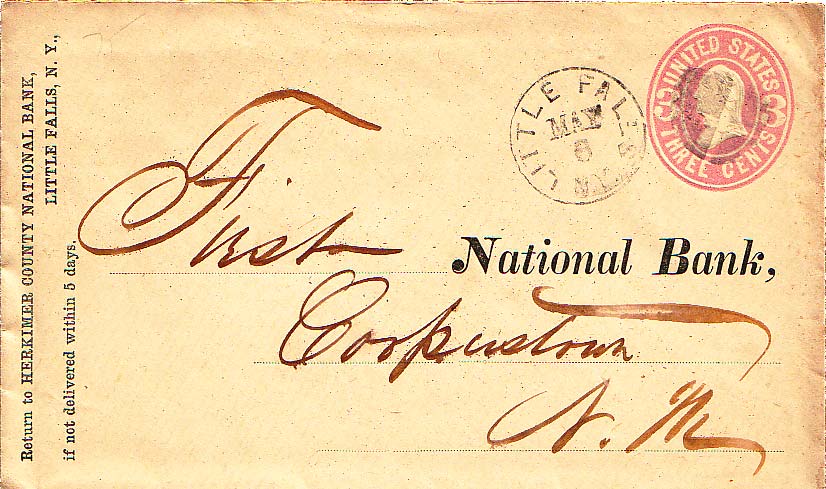 Return to HERKIMER COUNTY NATIONAL BANK,
LITTLE FALLS, N. Y.,
if not delivered within 5 days.
LITTLE FALLS N.Y.
MAY
6
UNITED STATES
3 3
THREE CENTS
First National Bank,
Cooperstown
N. Y.